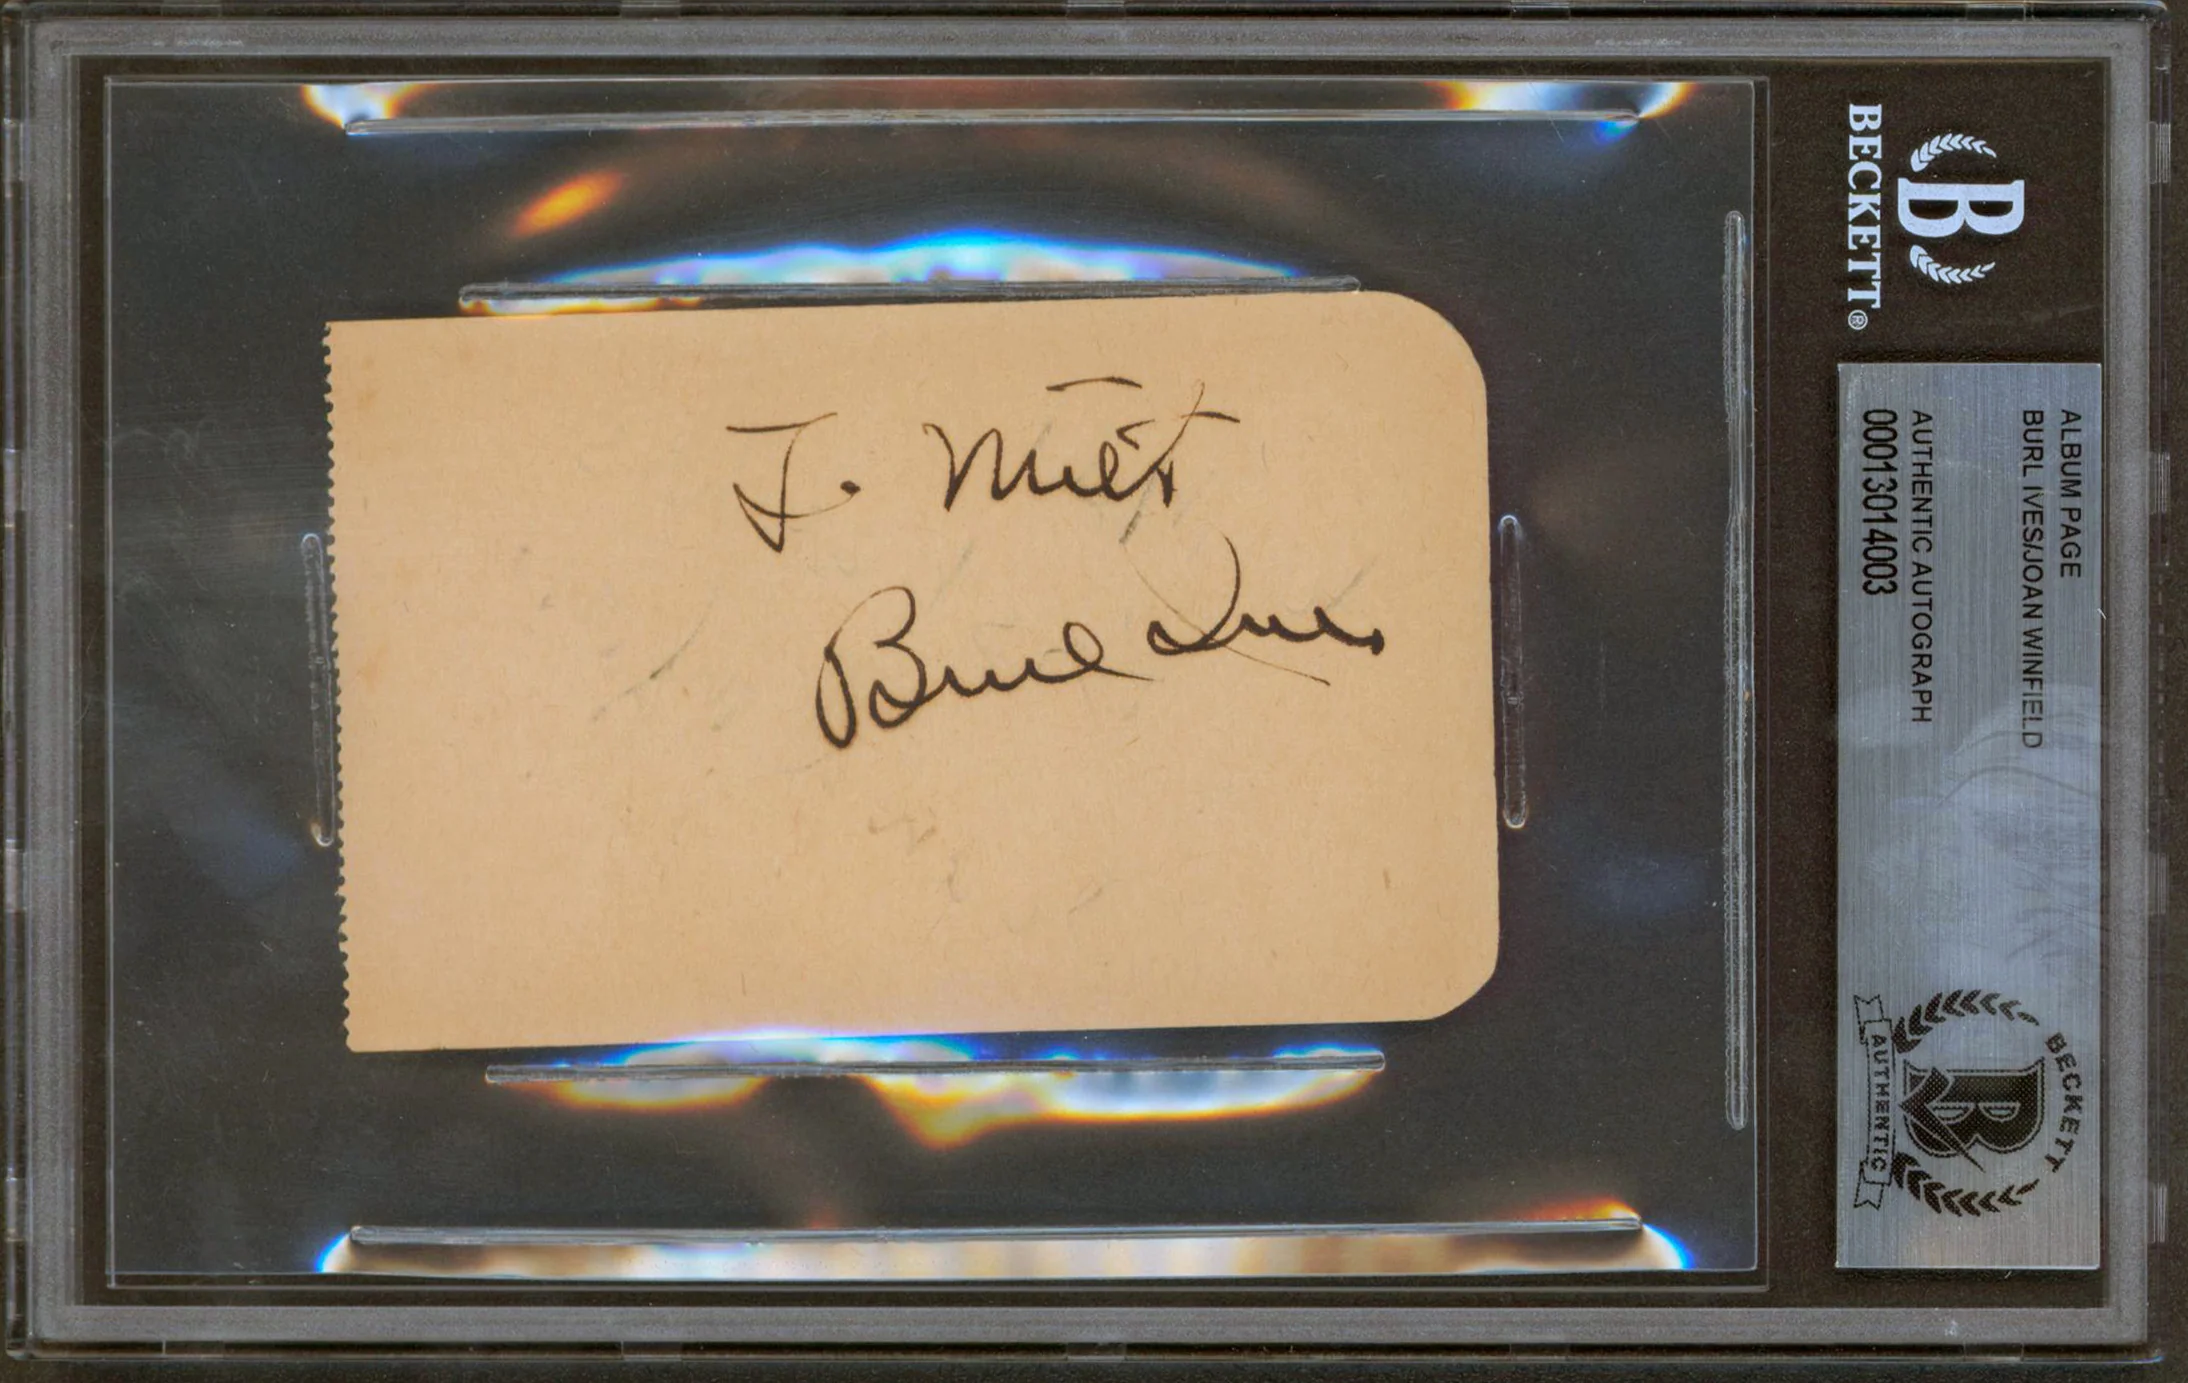 To Milt
Burl Ives
BECKETT®
ALBUM PAGE
BURL IVES/JOAN WINFIELD
AUTHENTIC AUTOGRAPH
00013014003
BECKETT
AUTHENTIC